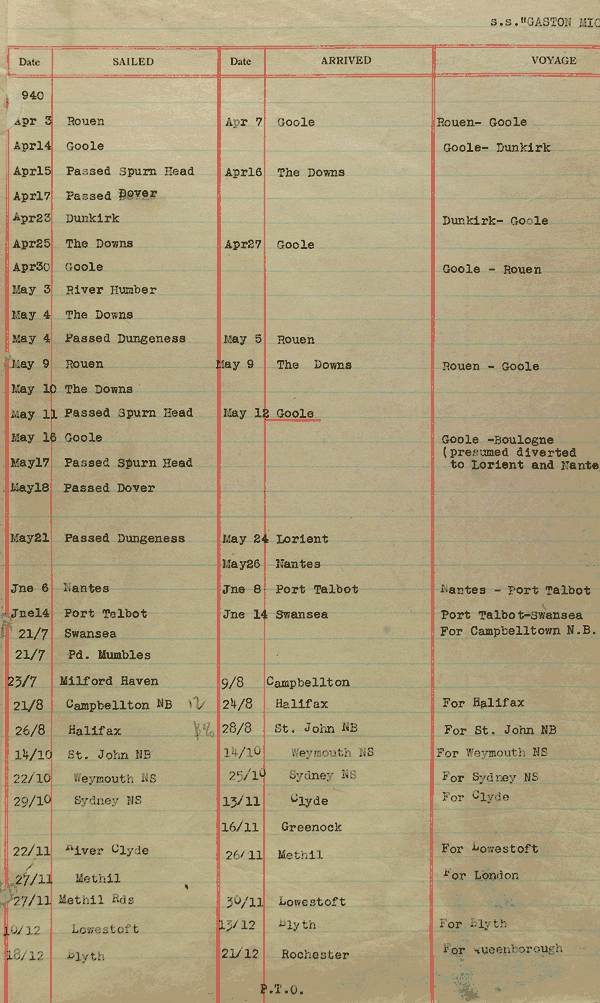 s.s."GASTON MIC
Date SAILED Date ARRIVED VOYAGE
940
Apr 3 Rouen Apr 7 Goole Rouen- Goole
Apr14 Goole Goole- Dunkirk
Apr15 Passed Spurn Head Apr16 The Downs
Apr17 Passed Dover
Apr23 Dunkirk Dunkirk- Goole
Apr25 The Downs Apr27 Goole
Apr30 Goole Goole - Rouen
May 3 River Humber
May 4 The Downs
May 4 Passed Dungeness May 5 Rouen
May 9 Rouen May 9 The Downs Rouen - Goole
May 10 The Downs
May 11 Passed Spurn Head May 12 Goole
May 16 Goole Goole -Boulogne
(presumed diverted
May17 Passed Spurn Head to Lorient and Nante
May18 Passed Dover
May21 Passed Dungeness May 24 Lorient
May26 Nantes
Jne 6 Nantes Jne 8 Port Talbot Nantes - Port Talbot
Jne14 Port Talbot Jne 14 Swansea Port Talbot-Swansea
21/7 Swansea For Campbelltown N.B.
21/7 Pd. Mumbles
23/7 Milford Haven 9/8 Campbellton
21/8 Campbellton NB 24/8 Halifax For Halifax
26/8 Halifax 28/8 St. John NB For St. John NB
14/10 St. John NB 14/10 Weymouth NS For Weymouth NS
22/10 Weymouth NS 25/10 Sydney NS For Sydney NS
29/10 Sydney NS 13/11 Clyde For Clyde
16/11 Greenock
22/11 River Clyde 26/11 Methil For Lowestoft
27/11 Methil For London
27/11 Methil Rds 30/11 Lowestoft
10/12 Lowestoft 13/12 Blyth For Blyth
18/12 Blyth 21/12 Rochester For Queenborough
P.T.O.